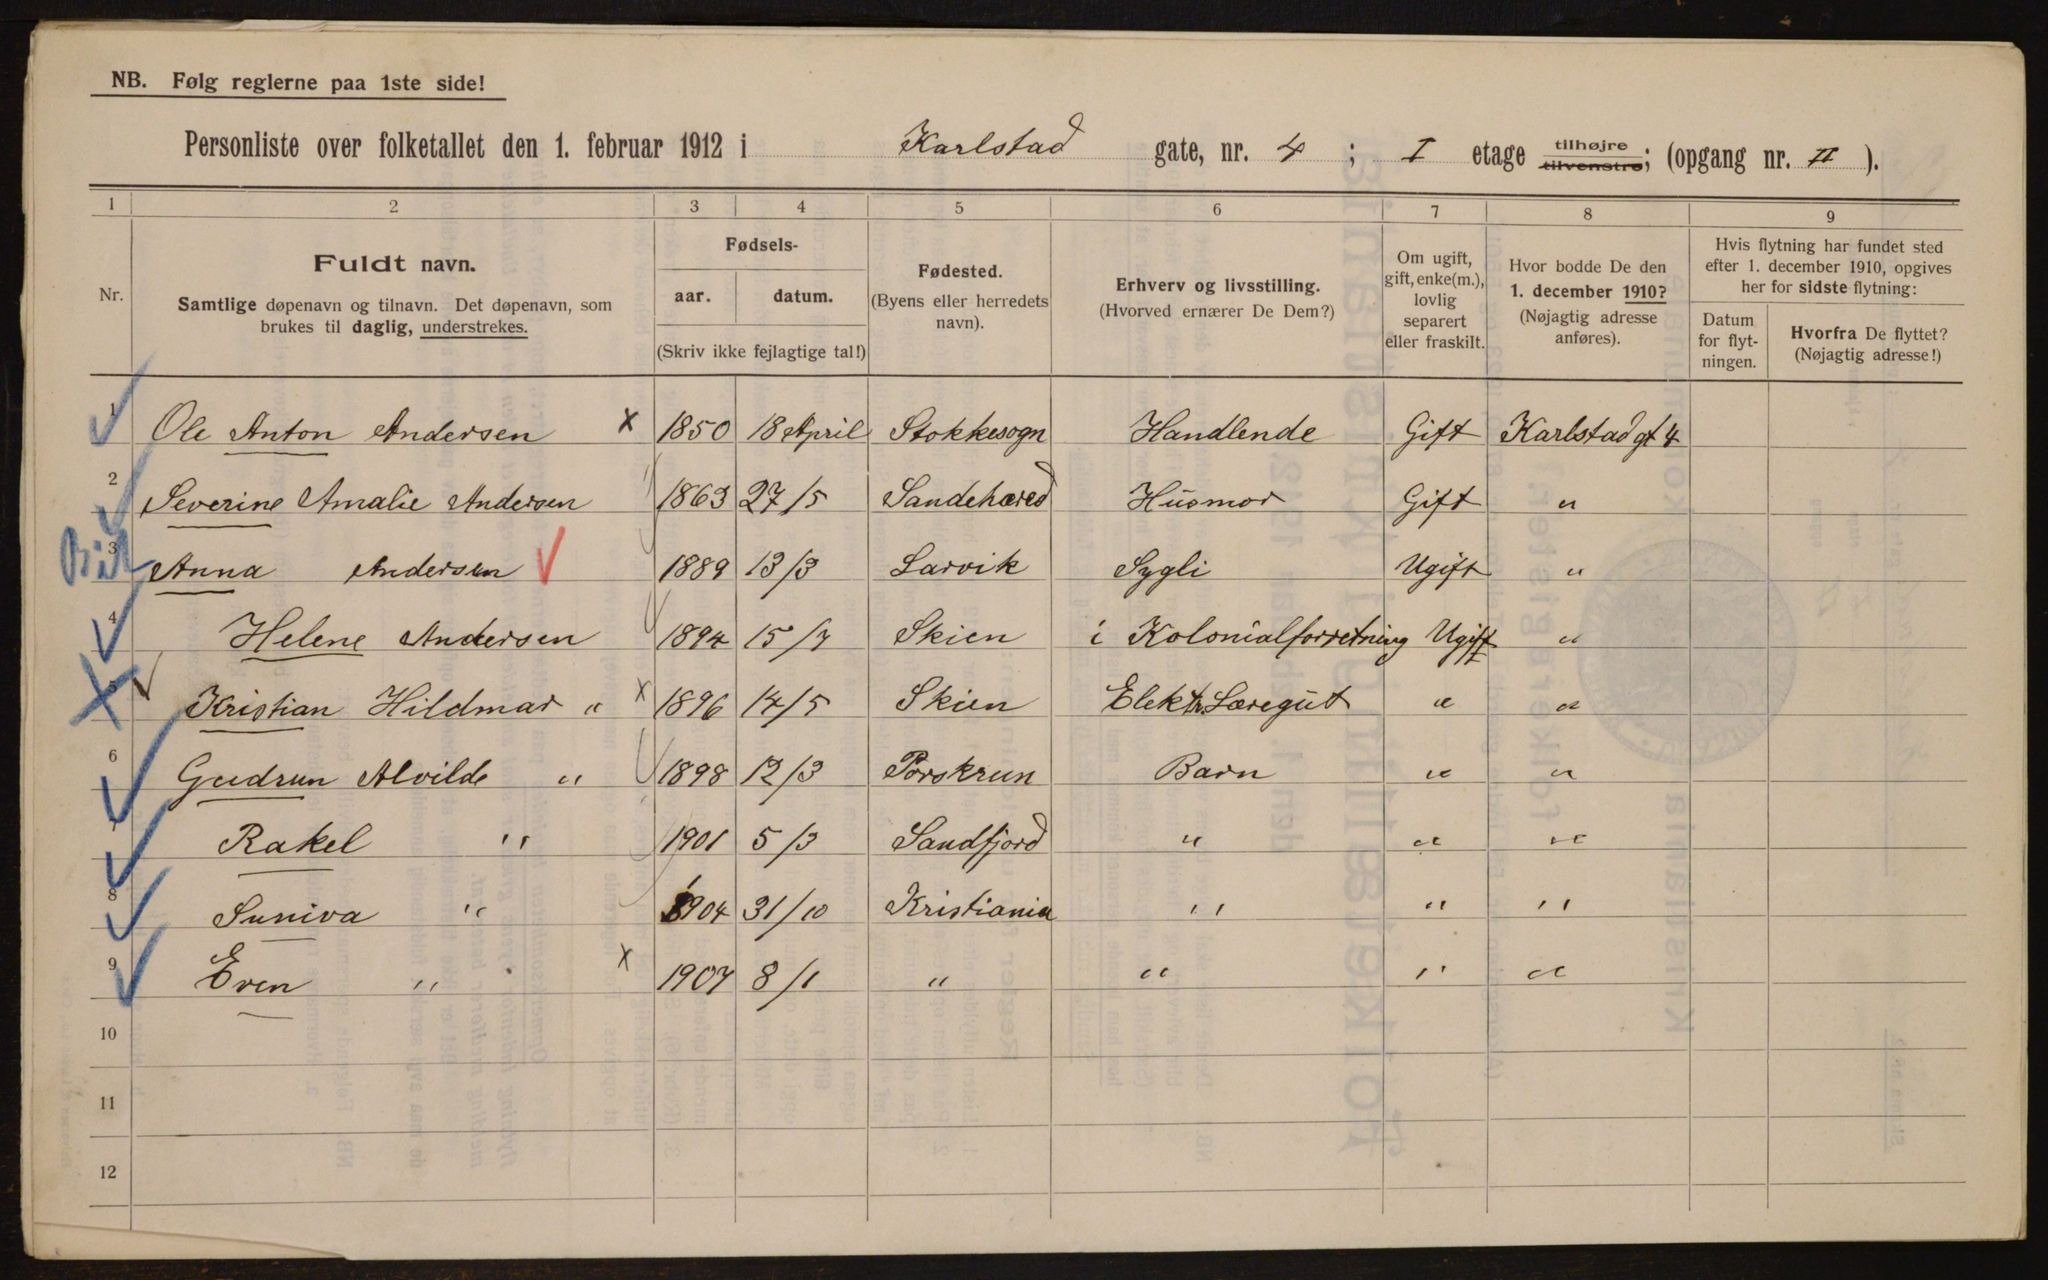 NB. Følg reglerne paa 1ste side!
Personliste over folketallet den 1. februar 1912 i Karlstad gate, nr. 4 ; I etage tilhøjre tilvenstre; (opgang nr. II ).
1 2 3 4 5 6 7 8 9
Nr.
Fuldt navn.
Samtlige døpenavn og tilnavn. Det døpenavn, som
brukes til daglig, understrekes.
Fødsels-
aar. datum.
(Skriv ikke fejlagtige tal!)
Fødested.
(Byens eller herredets
navn).
Erhverv og livsstilling.
(Hvorved ernærer De Dem?)
Om ugift,
gift, enke(m.),
lovlig
separert
eller fraskilt.
Hvor bodde De den
1. december 1910?
(Nøjagtig adresse
anføres).
Hvis flytning har fundet sted
efter 1. december 1910, opgives
her for sidste flytning:
Datum
for flyt-
ningen.
Hvorfra De flyttet?
(Nøjagtig adresse!)
1 Ole Anton Andersen x 1850 18 April Stokkesogn Handlende Gift Karlstad gt 4
2 Severine Amalie Andersen 1863 27/5 Sandehæred Husmor Gift "
3 Anna Andersen 1889 13/3 Larvik Sygli Ugift "
4 Helene Andersen 1894 15/7 Skien i Kolonialforretning Ugift "
5 Kristian Hildmar " x 1896 14/5 Skien Elektr. Læregut " "
6 Gudrun Alvilde " 1898 12/3 Porskrun Barn " "
7 Rakel " 1901 5/3 Sandfjord " " "
8 Suniva " 1904 31/10 Kristiania " " "
9 Even " x 1907 8/1 " " " "
10
11
12